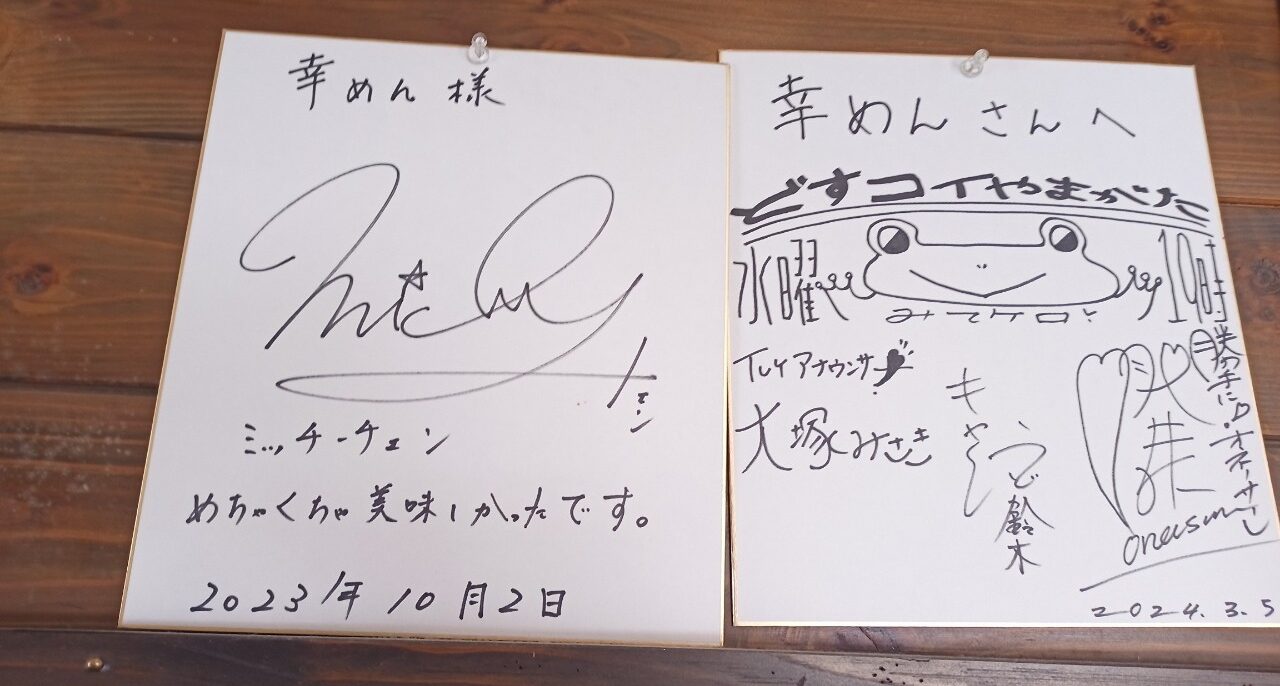 幸めん様
ミッチーチェン
めちゃくちゃ美味しかったです。
2023年10月2日
幸めんさんへ
どすコイやまがた
水曜 19時
みてケロ!
TUYアナウンサー
大塚みさき
キャイ〜ン
ウド鈴木
勝手に オネーサー
2024.3.5